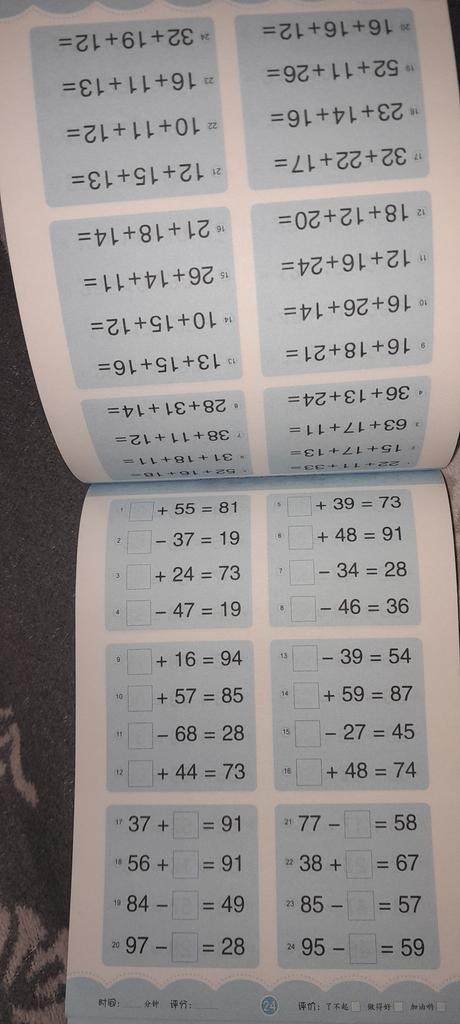 2 15+17+13=
3 63+17+11=
4 36+13+24=
6 31+18+11=
7 38+11+12=
8 28+31+14=
9 16+18+21=
10 16+26+14=
11 12+16+24=
12 18+12+20=
13 13+15+16=
14 10+15+12=
15 26+14+11=
16 21+18+14=
17 32+22+17=
18 23+14+16=
19 52+11+26=
20 16+16+12=
21 12+15+13=
22 10+11+12=
23 16+11+13=
24 32+19+12=
1 □ + 55 = 81
2 □ − 37 = 19
3 □ + 24 = 73
4 □ − 47 = 19
5 □ + 39 = 73
6 □ + 48 = 91
7 □ − 34 = 28
8 □ − 46 = 36
9 □ + 16 = 94
10 □ + 57 = 85
11 □ − 68 = 28
12 □ + 44 = 73
13 □ − 39 = 54
14 □ + 59 = 87
15 □ − 27 = 45
16 □ + 48 = 74
17 37 + □ = 91
18 56 + □ = 91
19 84 − □ = 49
20 97 − □ = 28
21 77 − □ = 58
22 38 + □ = 67
23 85 − □ = 57
24 95 − □ = 59
时间：____分钟 评分：____ 24 评价：了不起□ 做得好□ 加油哟□